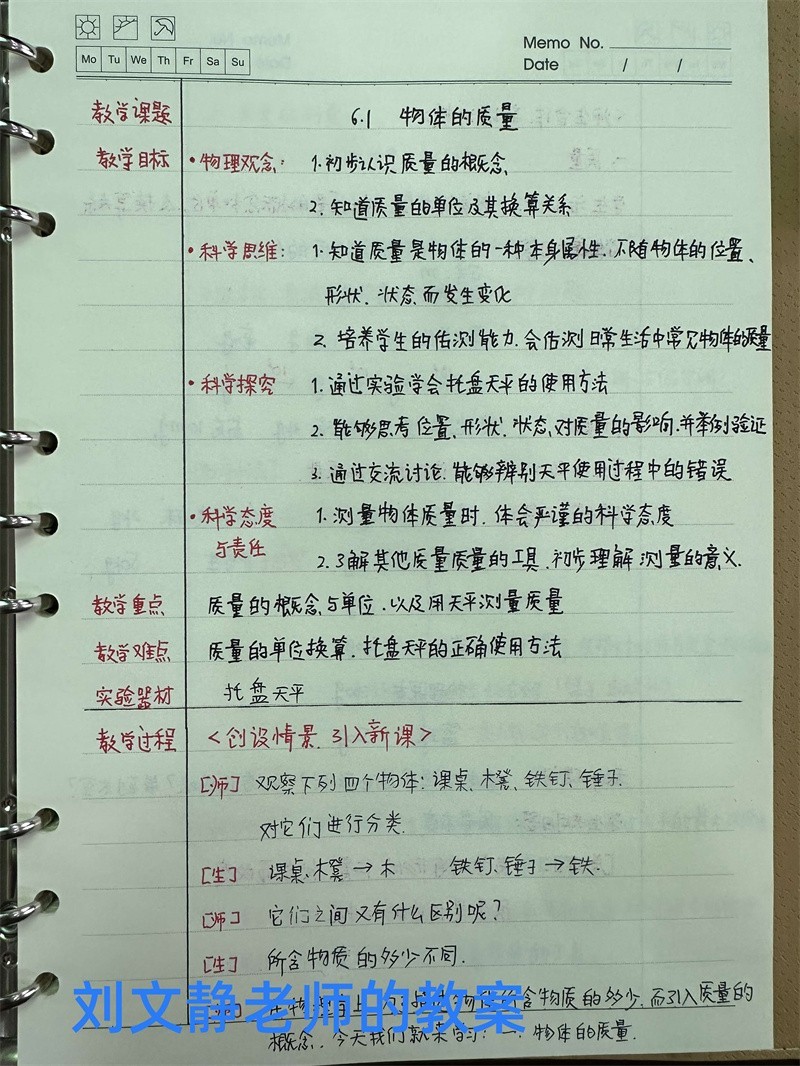 Memo No.
Mo Tu We Th Fr Sa Su
Date / /
教学课题 6.1 物体的质量
教学目标 ·物理观念: 1.初步认识质量的概念
2. 知道质量的单位及其换算关系
·科学思维: 1.知道质量是物体的一种本身属性.不随物体的位置、
形状.状态而发生变化
2. 培养学生的估测能力.会估测日常生活中常见物体的质量
·科学探究 1.通过实验学会托盘天平的使用方法
2. 能够思考位置.形状.状态.对质量的影响.并举例验证
3. 通过交流讨论.能够辨别天平使用过程中的错误
·科学态度 1.测量物体质量时.体会严谨的科学态度
与责任
2.了解其他质量质量的工具.初步理解测量的意义.
教学重点 质量的概念与单位.以及用天平测量质量
教学难点 质量的单位换算.托盘天平的正确使用方法
实验器材 托盘天平
教学过程 <创设情景.引入新课>
[师] 观察下列四个物体:课桌、木凳、铁钉、锤子.
对它们进行分类.
[生] 课桌、木凳→木 铁钉、锤子→铁.
[师] 它们之间又有什么区别呢?
[生] 所含物质的多少不同.
含物质的多少.而引入质量的
刘文静老师的教案
概念.今天我们就来学习:一.物体的质量.